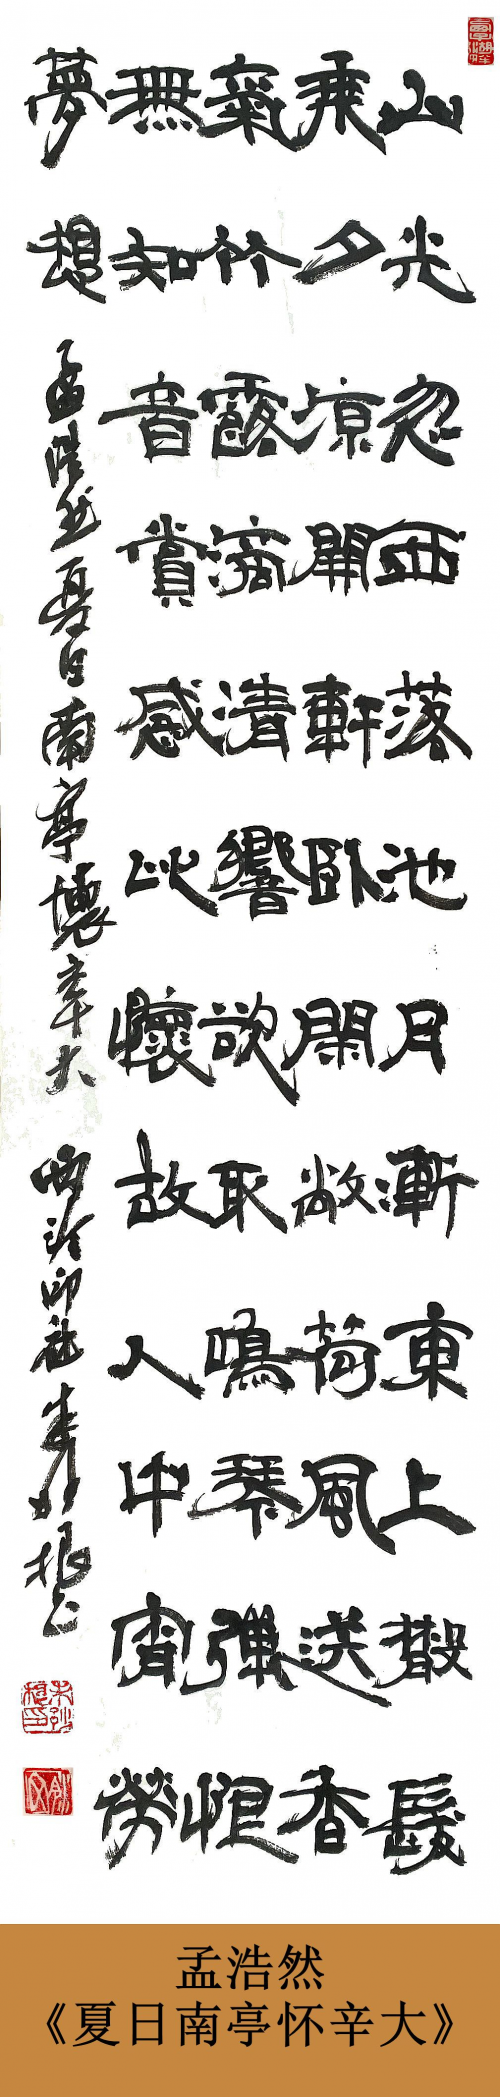 山光忽西落池月漸東上散髮
乘夕涼開軒卧閑敞荷風送香
氣竹露滴清響欲取鳴琴彈恨
無知音賞感此懷故人中宵勞
夢想
孟浩然夏日南亭懷辛大
西泠印社朱妙根书
朱妙根印
孟浩然
《夏日南亭怀辛大》